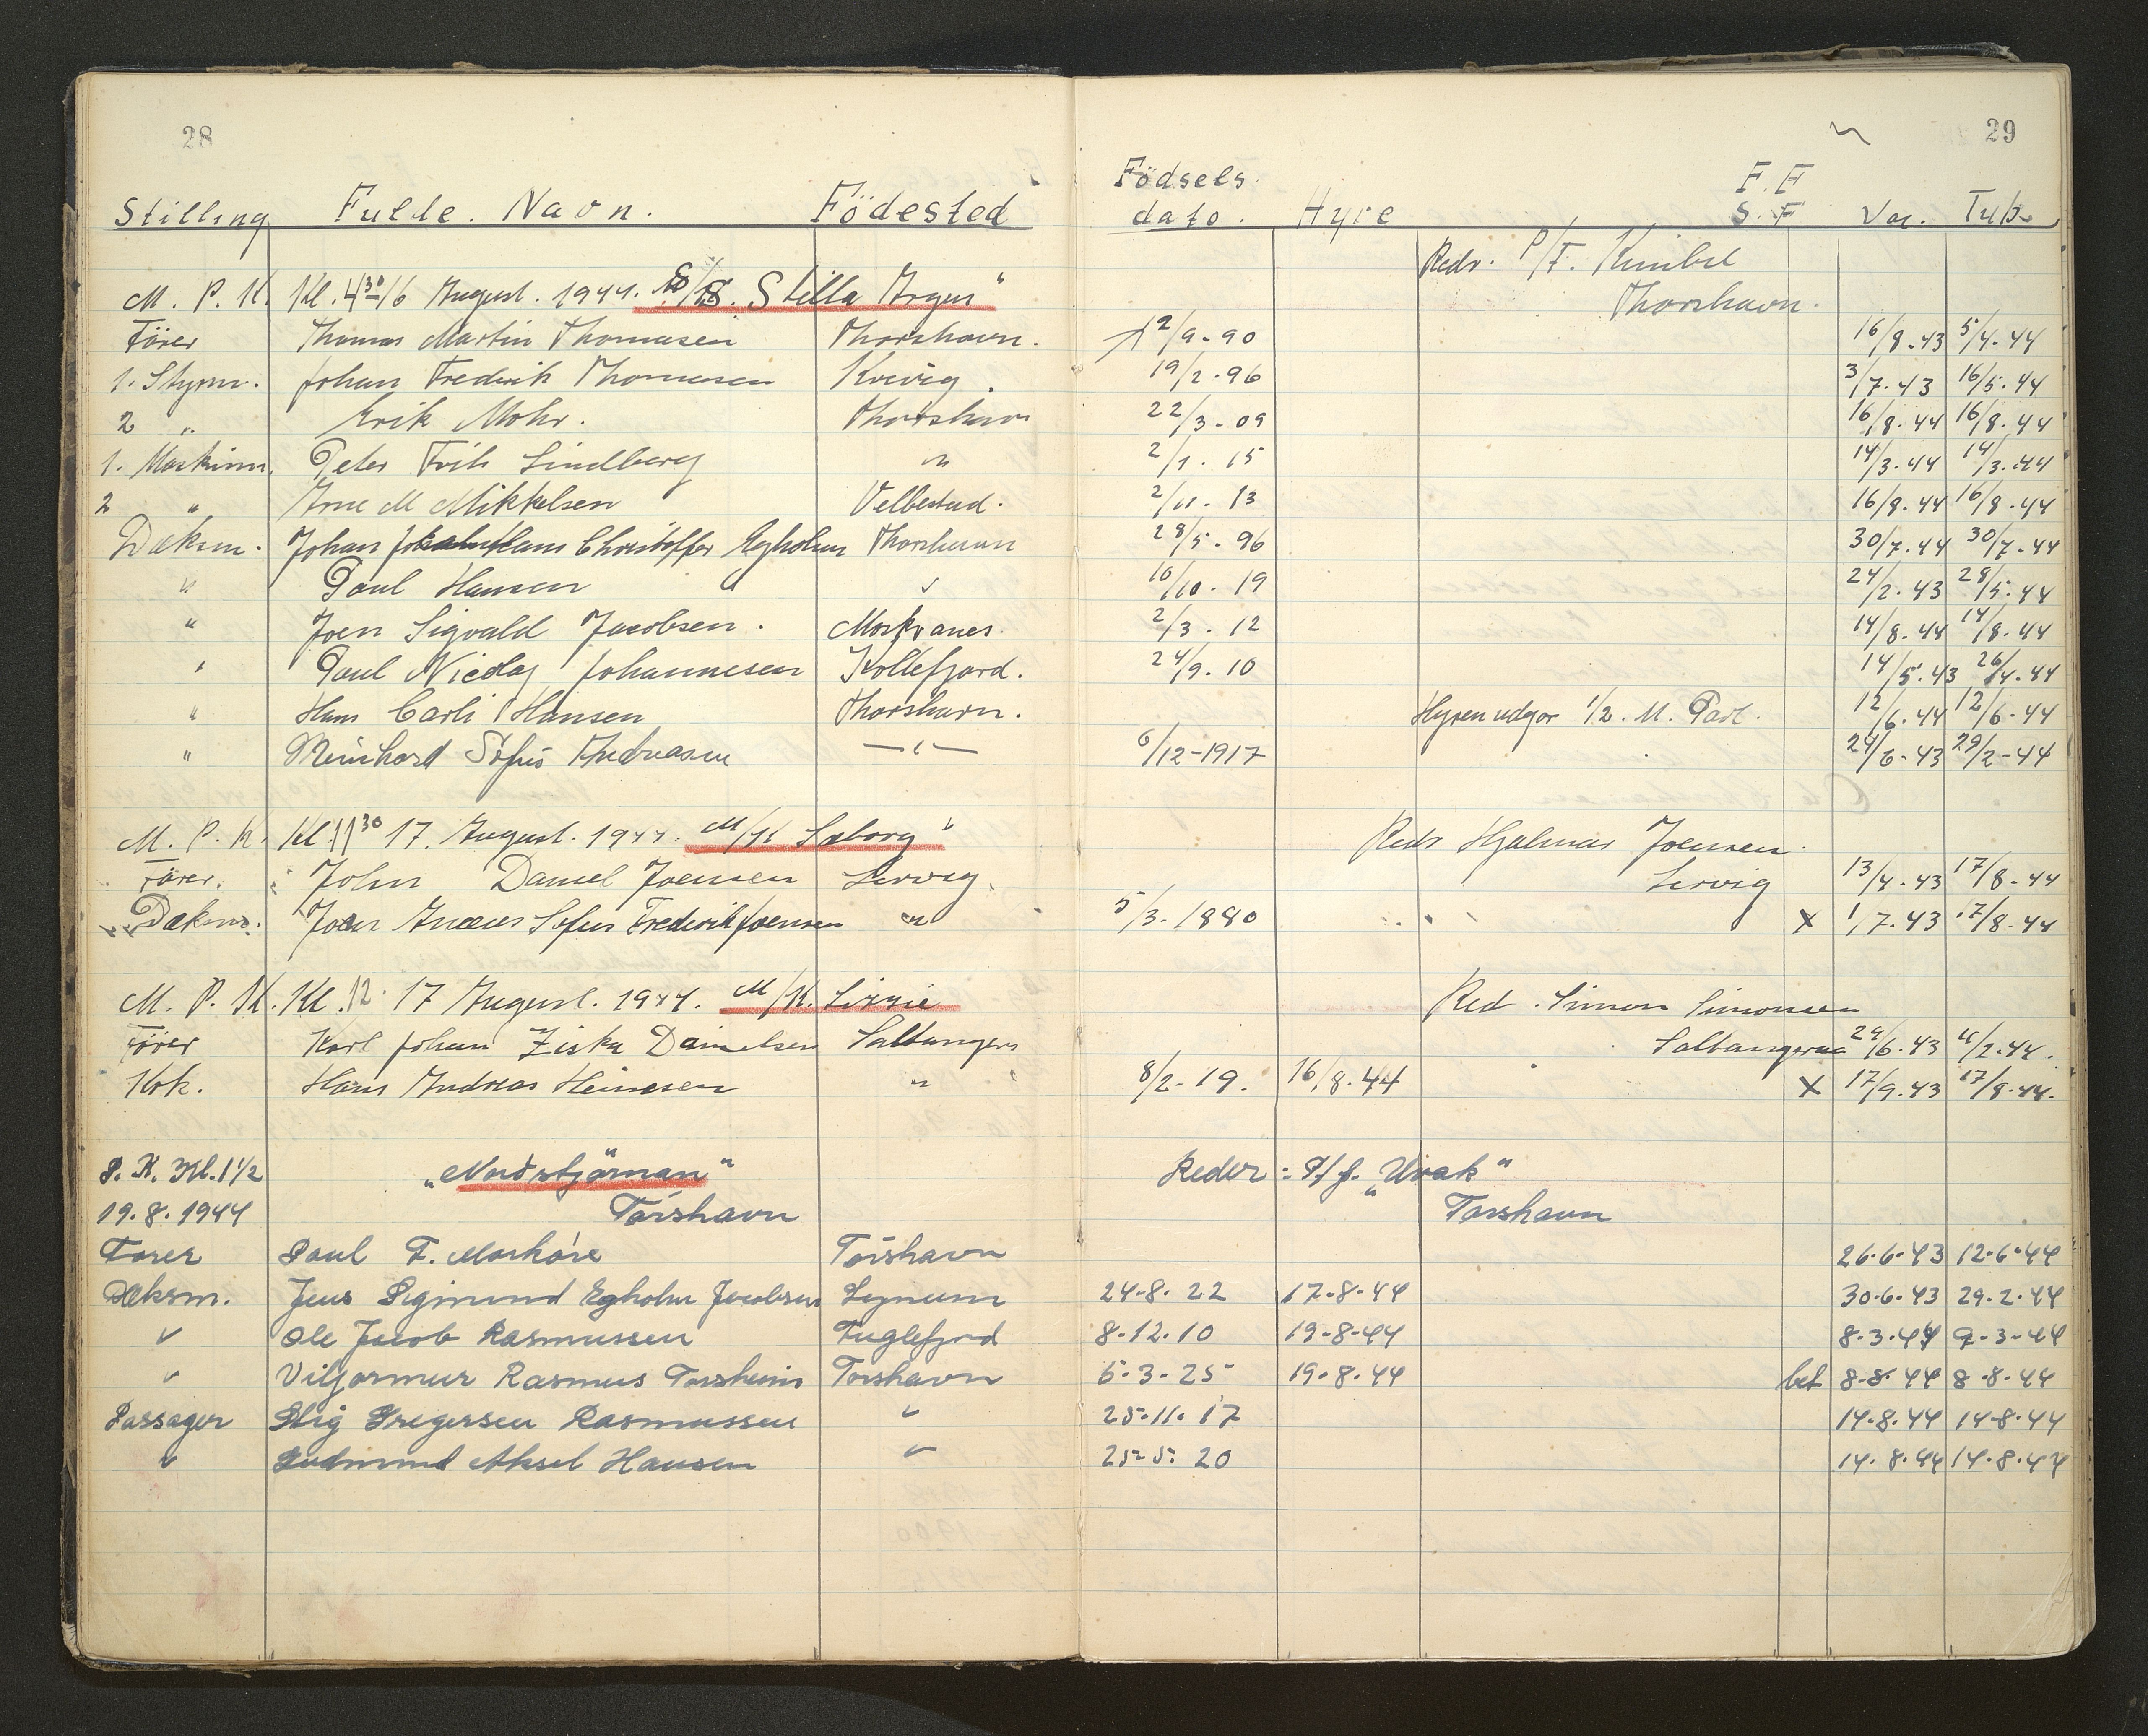 28
29
Stilling Fulde. Navn. Födested Födsels dato. Hyre F.F S.F Vac. Tub.
M. P. K. Kl. 4 30 16 August. 1944. S/S. Stella Argus" Redr. P/F.
Thorshavn.
Förer Thomas Martin Thomasen Thorshavn. 12/9-90 16/8-43 5/4-44
1. Styrm. Johan Frederik Thomasen Kvivig. 19/2-96 3/7-43 16/5-44
2 " Erik Mohr. Thorshavn 22/3-09 16/8-44 16/8-44
1. Maskinm. Peter Frits Lindberg " 2/1. 15 14/3-44 14/3-44
2 " Arne M Mikkelsen Velbestad. 2/11-13 16/8-44 16/8-44
Dæksm. Johan Hans Christoffer Egholm Thorshavn 28/5-96 30/7-44 30/7-44
" Poul Hansen " 10/10-19 24/2-43 28/5-44
" Joen Sigvald Jacobsen. Moskvanes. 2/3. 12 14/8-44 14/8-44
" Poul Nicolaj Johannesen Kollefjord. 24/9. 10 14/5-43 26/4-44
" Hans Carli Hansen Thorshavn. Hyren udgør 1/2. M. Part. 12/6-44 12/6-44
" Meinhard Sofus Andreasen —"— 6/12-1917 24/6-43 29/2-44
M. P. K. Kl 11 30 17. August. 1944. M/K Søborg" Redr Hjalmar Joensen.
Förer. John Daniel Joensen Lervig. Lervig 13/4-43 17/8-44
Dæksm. Joen Sofus Frederik Joensen " 5/3-1880 X 1/7.43 17/8-44
M. P. K. Kl. 12. 17 August. 1944. M/K. Lizzie Red. Simon Simonsen
Förer Karl Johan Ziska Danielsen Saltangeraa 24/6-43 /2-44.
Kok. Hans Andreas Heinesen " 8/2-19. 16/8-44 X 17/9.43 17/8-44.
P. K. Kl. 1 1/2 "Nordstjörnan" Reder: P/f. "Urak"
19. 8. 1944 Tórshavn Torshavn
Förer Poul F. Mørkøre Tórshavn 26.6.43 12.6.44
Dæksm. Jens Sigmund Egholm Jacobsen Lejnum 24.8.22 17.8.44 30.6.43 29.2.44
" Ole Jacob Rasmussen Fuglefjord 8.12.10 19.8.44 8.3.44 9.3.44
" Viljormur Rasmus Torsheim Torshavn 5.3.25 19.8.44 bet 8.8.44 8.8.44
Passager Stig Gregersen Rasmussen " 25.11.17 14.8.44 14.8.44
" Gudmund Aksel Hansen " 25.5.20 14.8.44 14.8.44